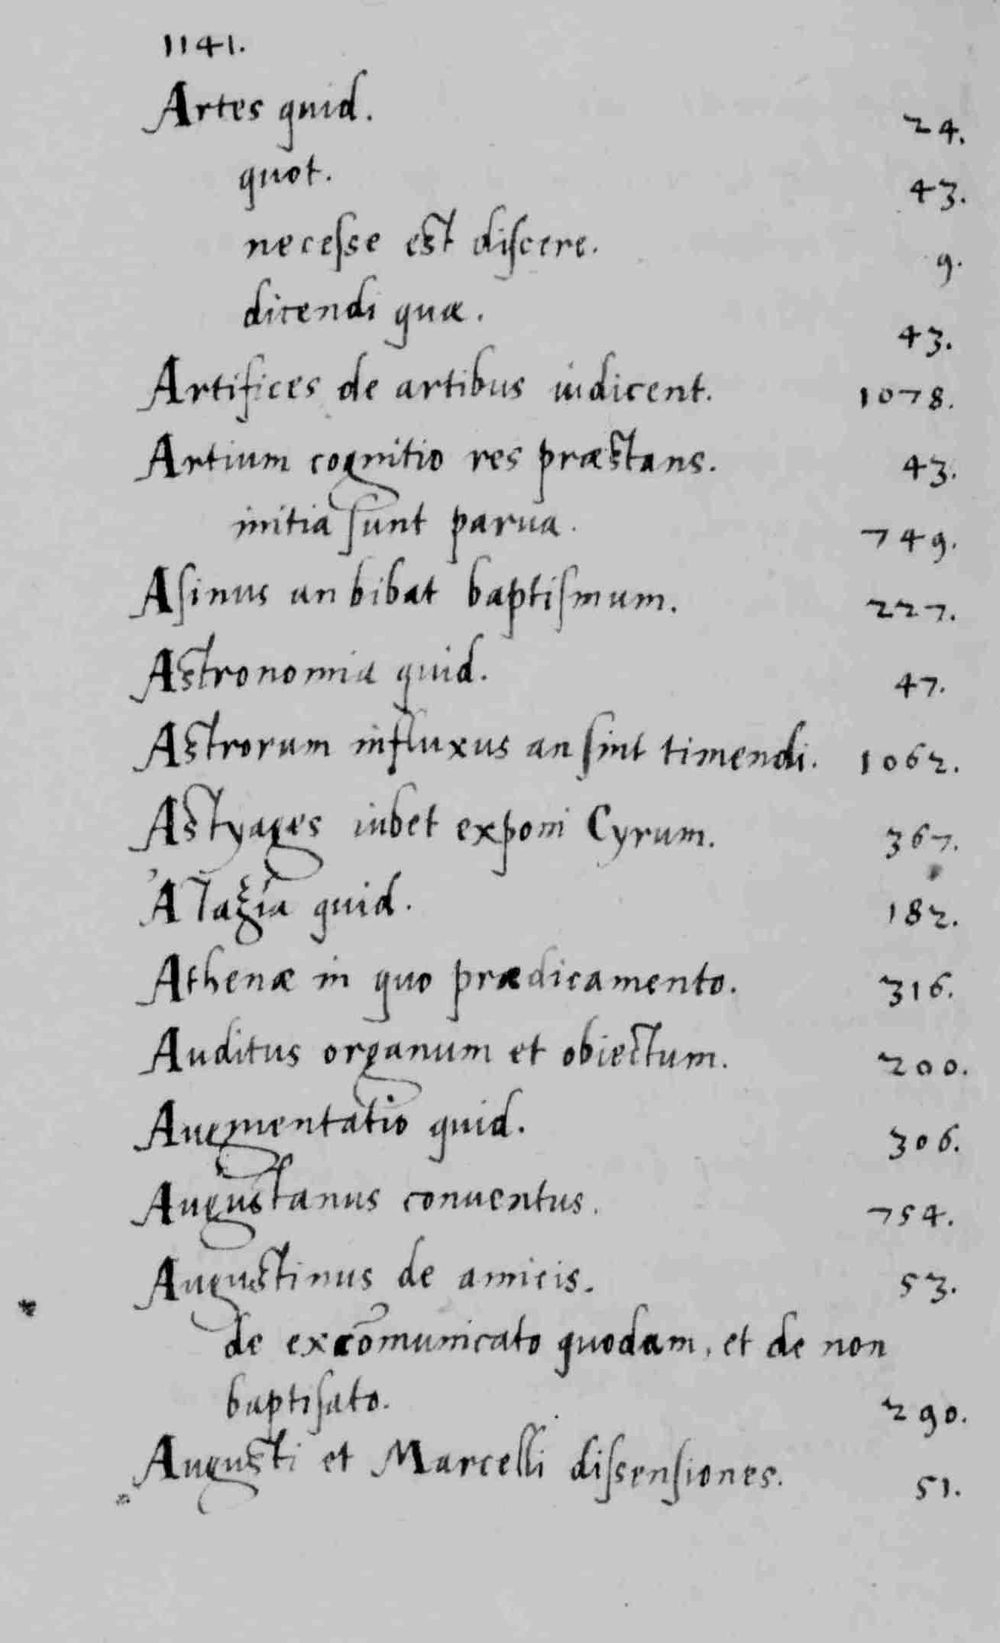 1141.
Artes quid. 24.
quot. 43.
necesse est discere. 9.
dicendi quæ. 43.
Artifices de artibus iudicent. 1078.
Artium cognitio res præstans. 43.
initia sunt parua. 749.
Asinus an bibat baptismum. 227.
Astronomia quid. 47.
Astrorum influxus an sint timendi. 1062.
Astyages iubet exponi Cyrum. 367.
Ἀταξία quid. 182.
Athenæ in quo prædicamento. 316.
Auditus organum et obiectum. 200.
Augmentatio quid. 306.
Augustanus conuentus. 754.
Augustinus de amicis. 53.
de excōmunicato quodam, et de non
baptisato. 290.
Augusti et Marcelli dissensiones. 51.